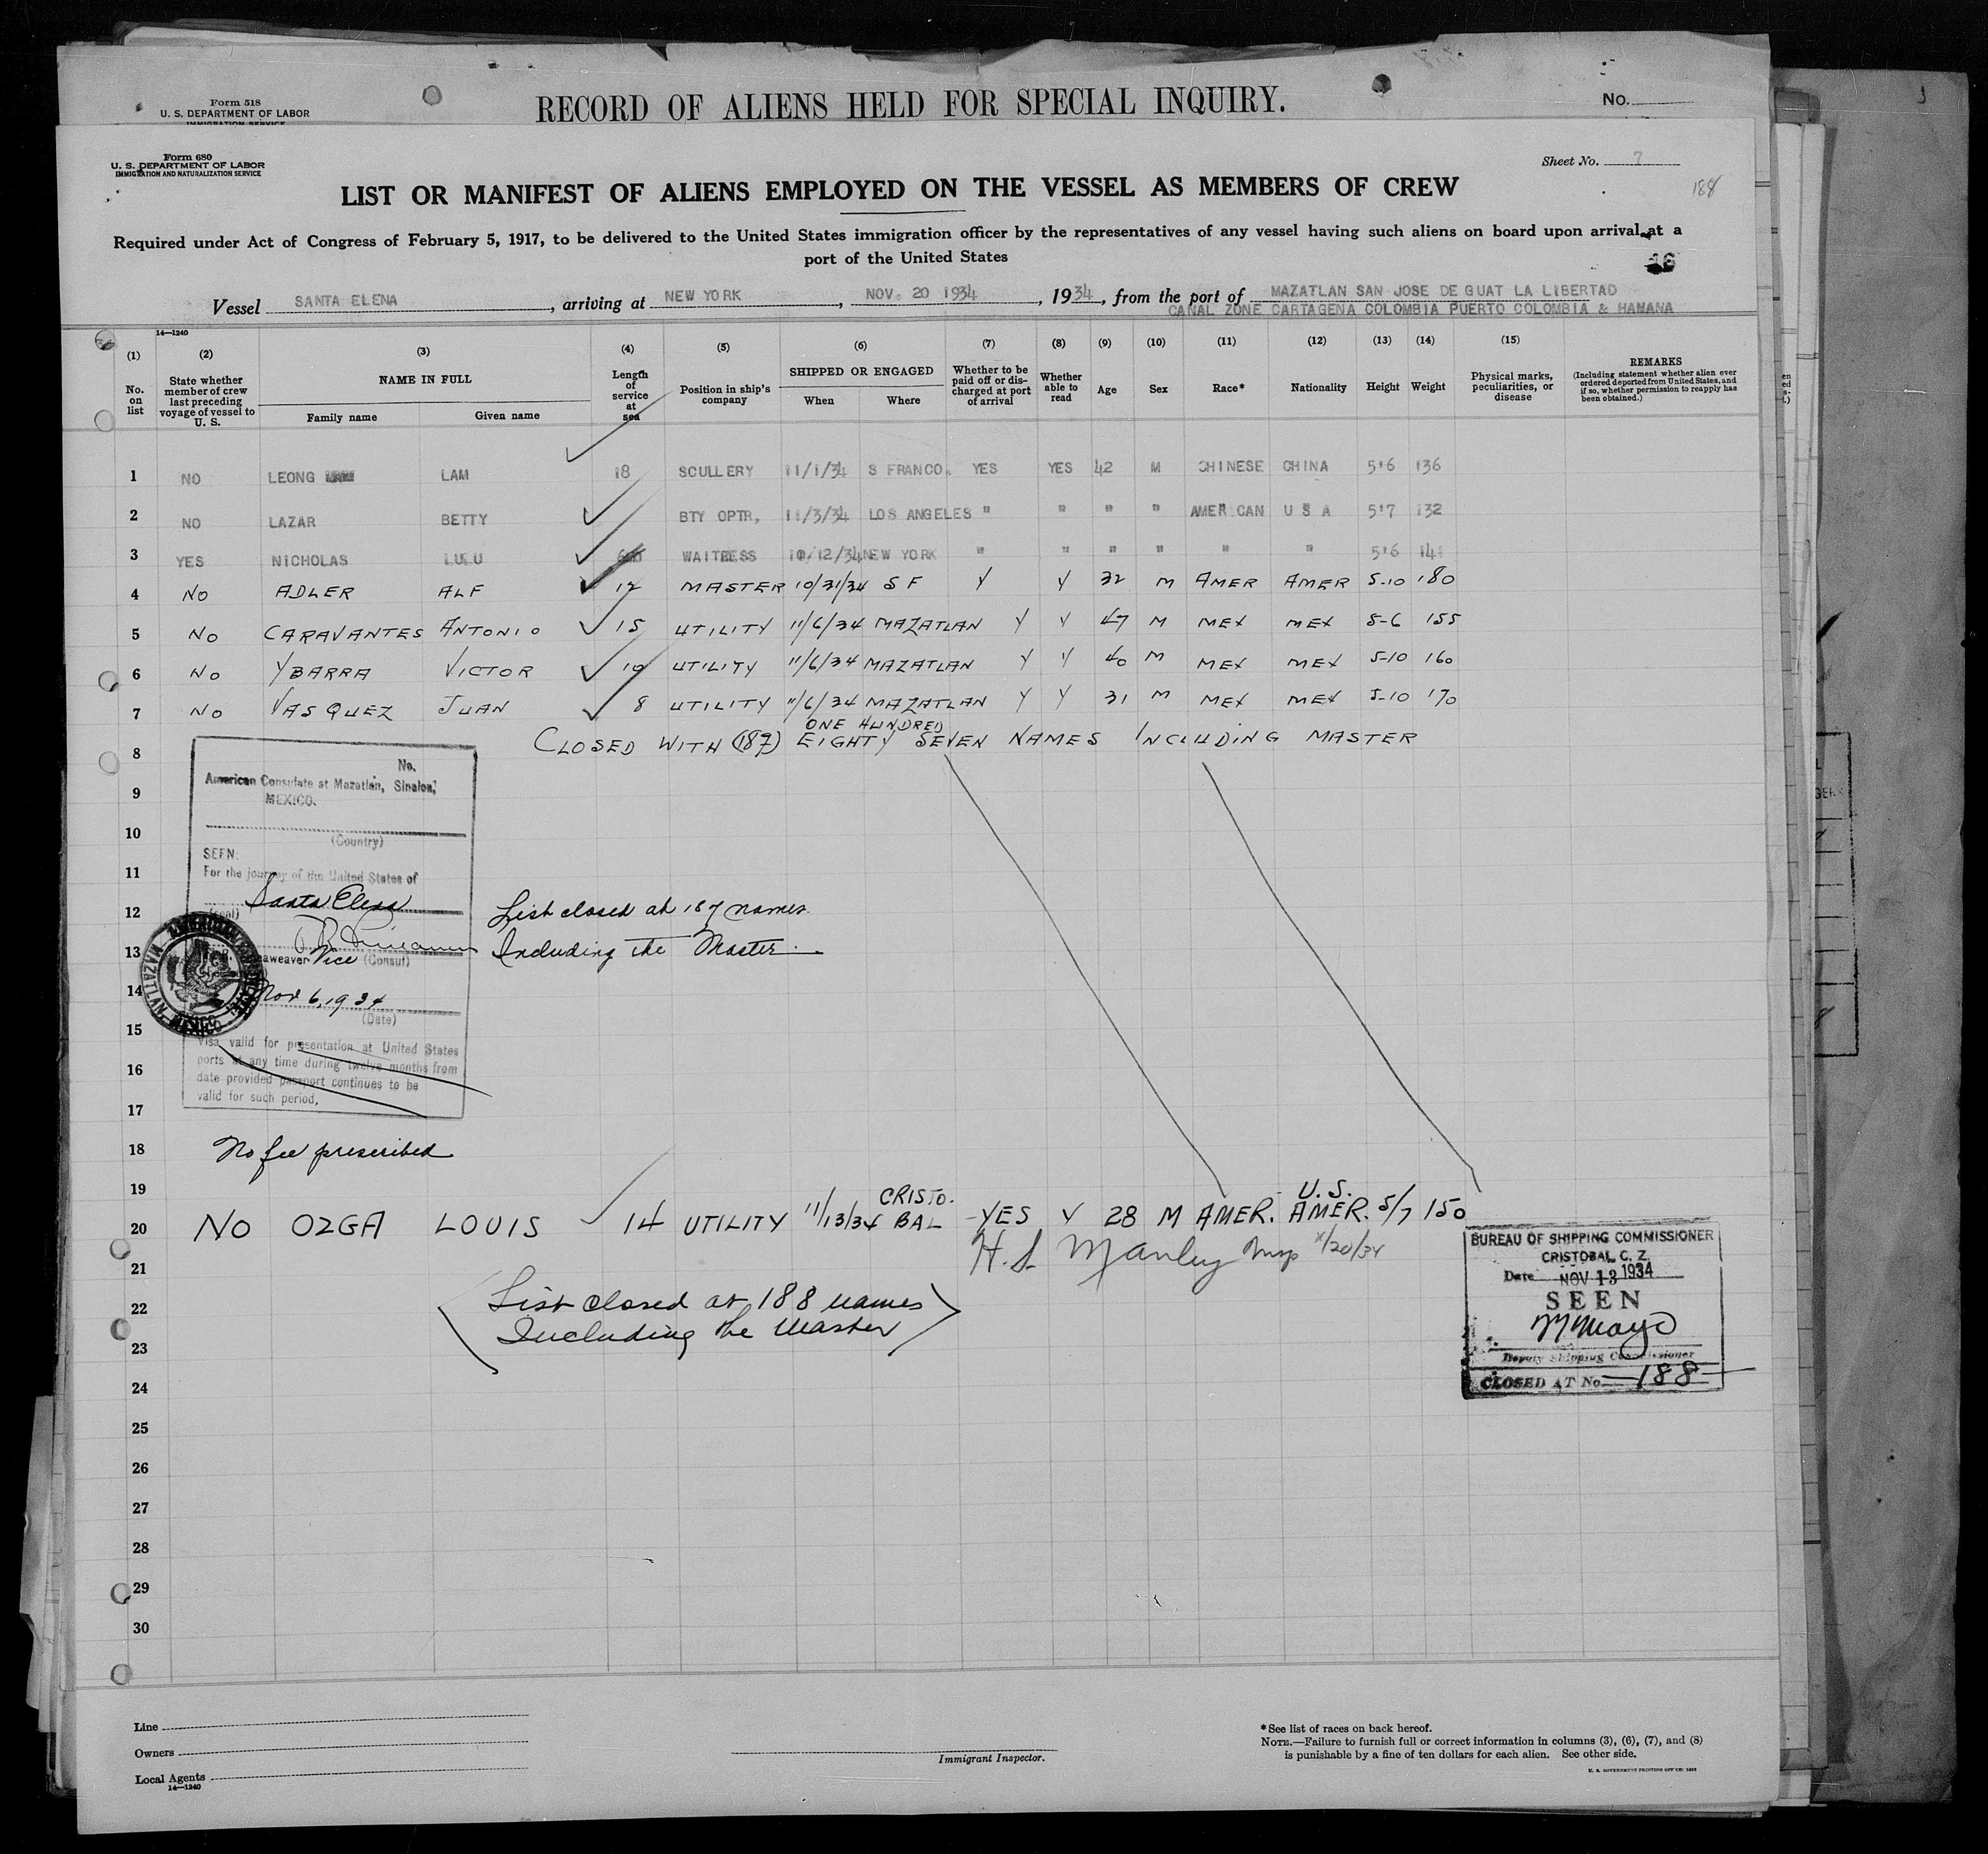 Form 518
U. S. DEPARTMENT OF LABOR
IMMIGRATION SERVICE
RECORD OF ALIENS HELD FOR SPECIAL INQUIRY.
No.
Form 680
U. S. DEPARTMENT OF LABOR
IMMIGRATION AND NATURALIZATION SERVICE
Sheet No. 7
188
LIST OR MANIFEST OF ALIENS EMPLOYED ON THE VESSEL AS MEMBERS OF CREW
Required under Act of Congress of February 5, 1917, to be delivered to the United States immigration officer by the representatives of any vessel having such aliens on board upon arrival at a
port of the United States
Vessel SANTA ELENA, arriving at NEW YORK, NOV. 20 1934, 1934, from the port of MAZATLAN SAN JOSE DE GUAT LA LIBERTAD
CANAL ZONE CARTAGENA COLOMBIA PUERTO COLOMBIA & HAMANA
14—1240
(1) (2) (3) (4) (5) (6) (7) (8) (9) (10) (11) (12) (13) (14) (15)
No. on list
State whether member of crew last preceding voyage of vessel to U. S.
NAME IN FULL
Family name
Given name
Length of service at sea
Position in ship's company
SHIPPED OR ENGAGED
When
Where
Whether to be paid off or discharged at port of arrival
Whether able to read
Age
Sex
Race*
Nationality
Height
Weight
Physical marks, peculiarities, or disease
REMARKS
(Including statement whether alien ever ordered deported from United States, and if so, whether permission to reapply has been obtained.)
1 NO LEONG LAM 18 SCULLERY 11/1/34 S FRANCO. YES YES 42 M CHINESE CHINA 5'6 136
2 NO LAZAR BETTY BTY OPTR, 11/3/34 LOS ANGELES " " " " AMERICAN U S A 5'7 132
3 YES NICHOLAS LULU WAITRESS 10/12/34 NEW YORK " " " " " " 5'6 141
4 NO ADLER ALF 12 MASTER 10/31/34 S F Y Y 32 M AMER AMER 5-10 180
5 NO CARAVANTES ANTONIO 15 UTILITY 11/6/34 MAZATLAN Y Y 47 M MEX MEX 5-6 155
6 NO YBARRA VICTOR 10 UTILITY 11/6/34 MAZATLAN Y Y 40 M MEX MEX 5-10 160
7 NO VASQUEZ JUAN 8 UTILITY 11/6/34 MAZATLAN Y Y 31 M MEX MEX 5-10 170
ONE HUNDRED
8 CLOSED WITH (187) EIGHTY SEVEN NAMES INCLUDING MASTER
No.
American Consulate at Mazatlan, Sinaloa,
MEXICO.
9
10
(Country)
SEEN:
11
For the journey of the United States of
Santa Elena
12
(Seal)
List closed at 187 names
13
Vice (Consul)
Including the Master
AMERICAN CONSULATE
MAZATLAN MEXICO
14
Nov 6, 1934
(Date)
15
Visa valid for presentation at United States
16
ports at any time during twelve months from
date provided passport continues to be
valid for such period.
17
18 No fee prescribed
19
CRISTO- U.S.
20 NO OZGA LOUIS 14 UTILITY 11/13/34 BAL YES Y 28 M AMER. AMER. 5/7 150
H. S. Manley Insp 11/20/34
21
22 List closed at 188 names
Including the Master
23
BUREAU OF SHIPPING COMMISSIONER
CRISTOBAL, C. Z.
Date NOV 13 1934
SEEN
M Mayo
Deputy Shipping Commissioner
CLOSED AT No. 188
24
25
26
27
28
29
30
Line
Owners
Local Agents
14—1240
Immigrant Inspector.
*See list of races on back hereof.
NOTE.—Failure to furnish full or correct information in columns (3), (6), (7), and (8)
is punishable by a fine of ten dollars for each alien. See other side.